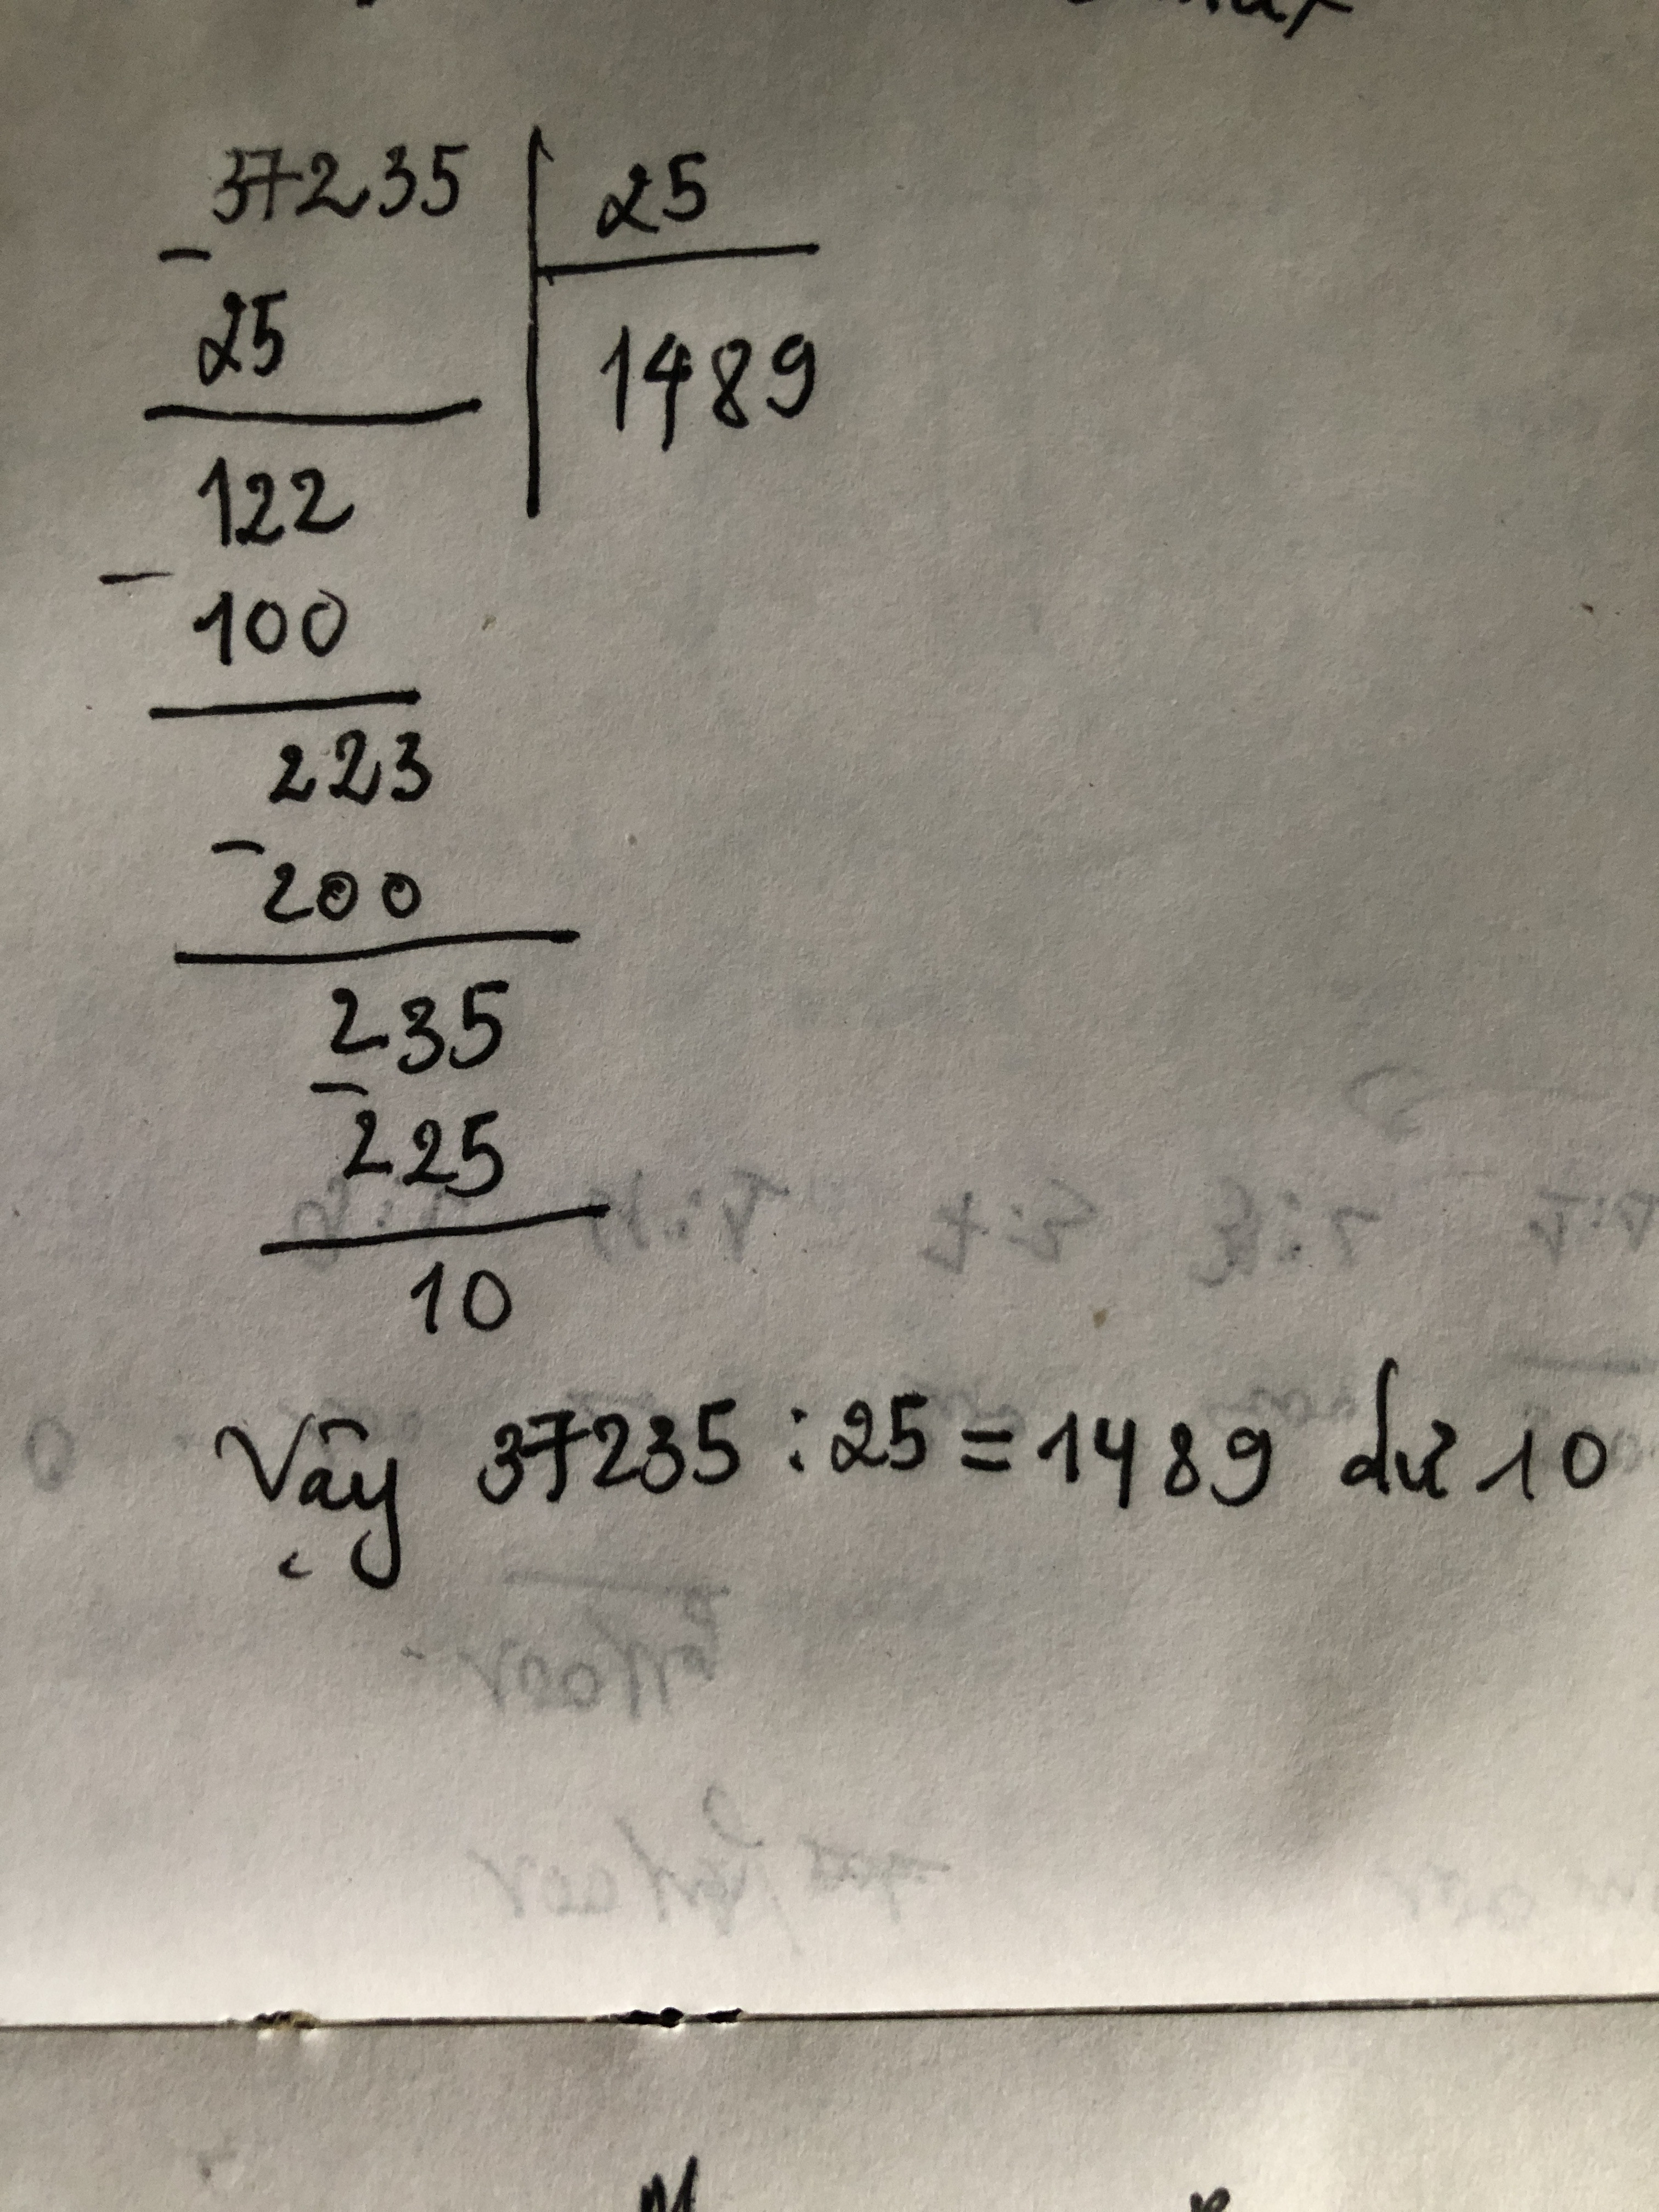 37235 25
- 25 1489
122
- 100
223
- 200
235
- 225
10
Vậy 37235 : 25 = 1489 dư 10